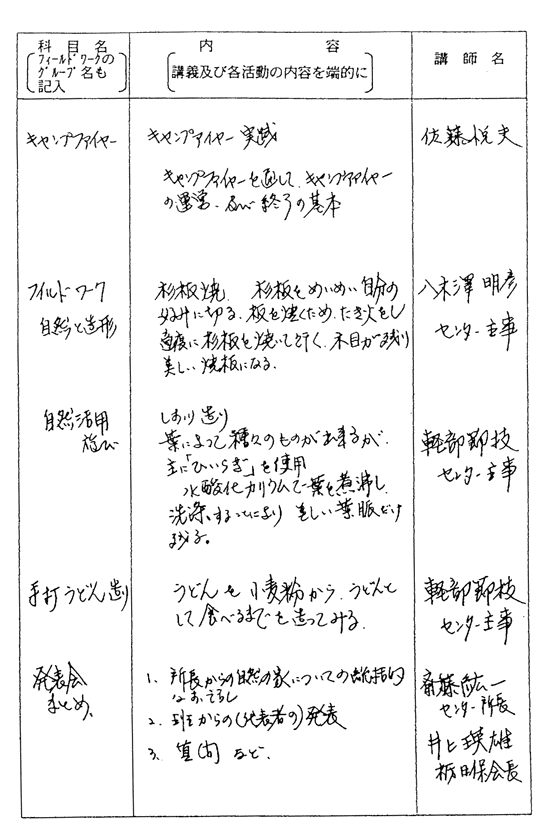 科目名
フィールドワークの
グループ名も
記入
内容
講義及び各活動の内容を端的に
講師名
キャンプファイヤー
キャンプファイヤー 実践
キャンプファイヤーを通して、キャンプファイヤー
の運営、及び終了の基本
佐藤悦夫
フィルドワーク
自然と造形
杉板焼、杉板をめいめい自分の
好みに切る、板を焼くため、たき火をし
適度に杉板を焼いて行く、木目が残り
美しい焼板になる。
八木澤明彦
センター主事
自然活用
遊び
しおり造り
葉によって種々のものが出来るが、
主に「ひいらぎ」を使用
水酸化カリウムで葉を煮沸し
洗滌することにより 美しい葉脈だけ
残る。
軽部野枝
センター主事
手打うどん造り
うどんを小麦粉から、うどんと
して食べるまでを造ってみる。
軽部野枝
センター主事
発表会
まとめ
1. 所長からの自然の家についての総括的
なおはなし
2. 班からの(代表者の)発表
3. 
など.
斎藤紘一
センター所長
井上瑛雄
栃日保会長